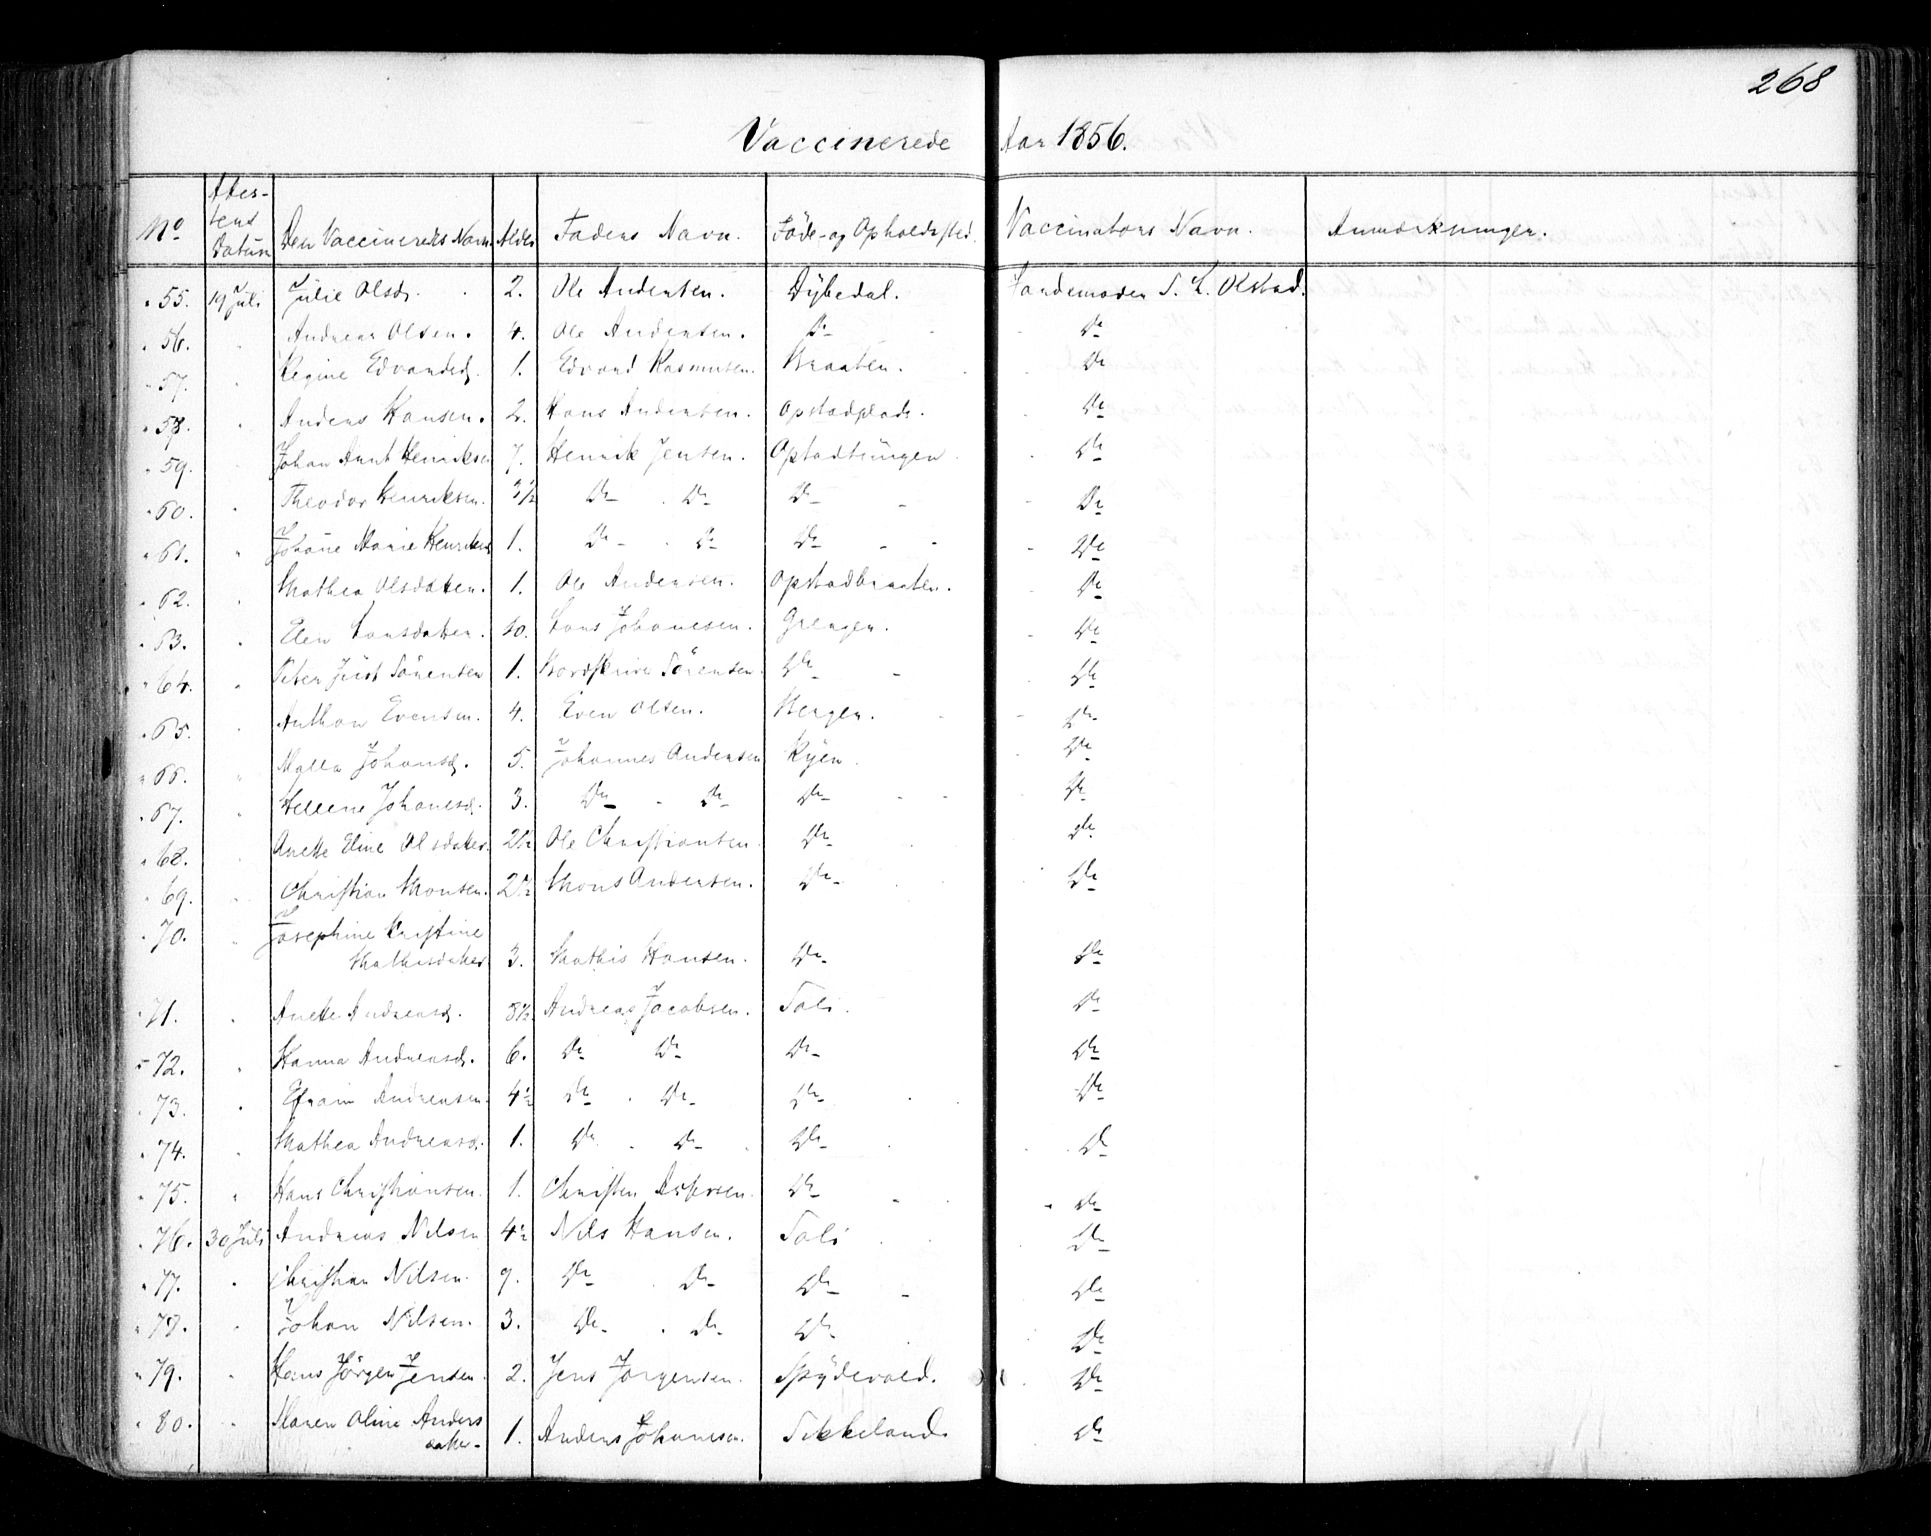 268
Vaccinerede Aar 1856.
No Attestens Datum Den Vaccineredes Navn Alder Faders Navn. Føde- og Opholdssted. Vaccinators Navn. Anmærkninger.
55. 19 Juli Julie Olsd. 2. Ole Andersen. Dybedal. Jordemoder S. L. Olstad.
56. " Andreas Olsen. 4. Ole Andersen. Do Do
57. " Regine Edvardsd. 1. Edvard Rasmusen. Braaten. Do
58. " Anders Hansen. 2. Hans Andersen. Opstadplads. Do
59. " Johan Arnt Henriksen 7. Henrik Jensen. Opstadtungen Do
60. " Theodor Henriksen. 3½ Do Do Do Do
61. " Johane Marie Henriksd 1. Do Do Do Do
62. " Mathea Olsdatter. 1. Ole Andersen. Opstadbraaten. Do
63. " Elen Larsdatter. 10. Lars Johanesen. Grengen. Do
64. " Peter Just Sörensen 1. Sörensen. Do Do
65. " Anthon Evensen. 4. Even Olsen. Bergen. Do
66. " Malla Johansd. 5. Johannes Andersen Ryen Do
67. " Hellene Johanesd. 3. Do Do Do Do
68. Anette Eline Olsdatter. 2½ Ole Christiansen Do Do
69. " Christian Monsen. 2½ Mons Andersen. Do Do
70. " Josephine Kristine
Mathisdatter 3. Mathis Hansen. Do Do
71. " Anette Andreasd. 8½ Andreas Jacobsen. Toli. Do
72. " Hanna Andreasd. 6. Do Do Do Do
73. " Efraim Andreasen. 4½ Do Do Do Do
74. " Mathea Andreasd. 1. Do Do Do Do
75. " Hans Christiansen. 1. Christen Do Do
76. 30 Juli Andreas Nilsen 4½ Nils Hansen. Toli Do
77. " Christian Nilsen. 9. Do Do Do Do
78. " Johan Nilsen. 3. Do Do Do Do
79. " Hans Jörgen Jensen. 2. Jens Jorgensen. Spydevold. Do
80. " Maren Oline Anders
datter 1. Anders Johanesen. Tikkeland. Do